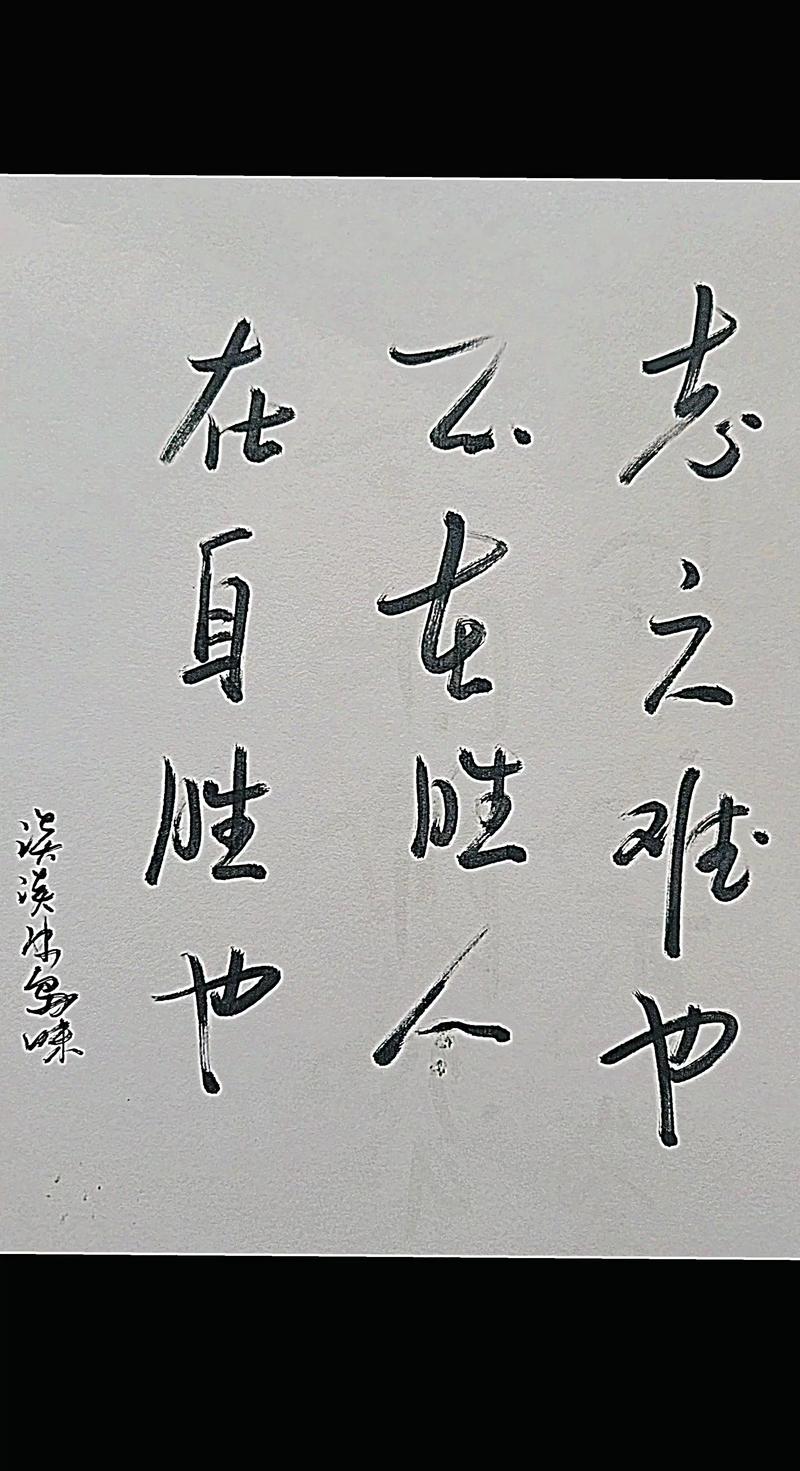 志之难也
不在胜人
在自胜也
淡淡
味